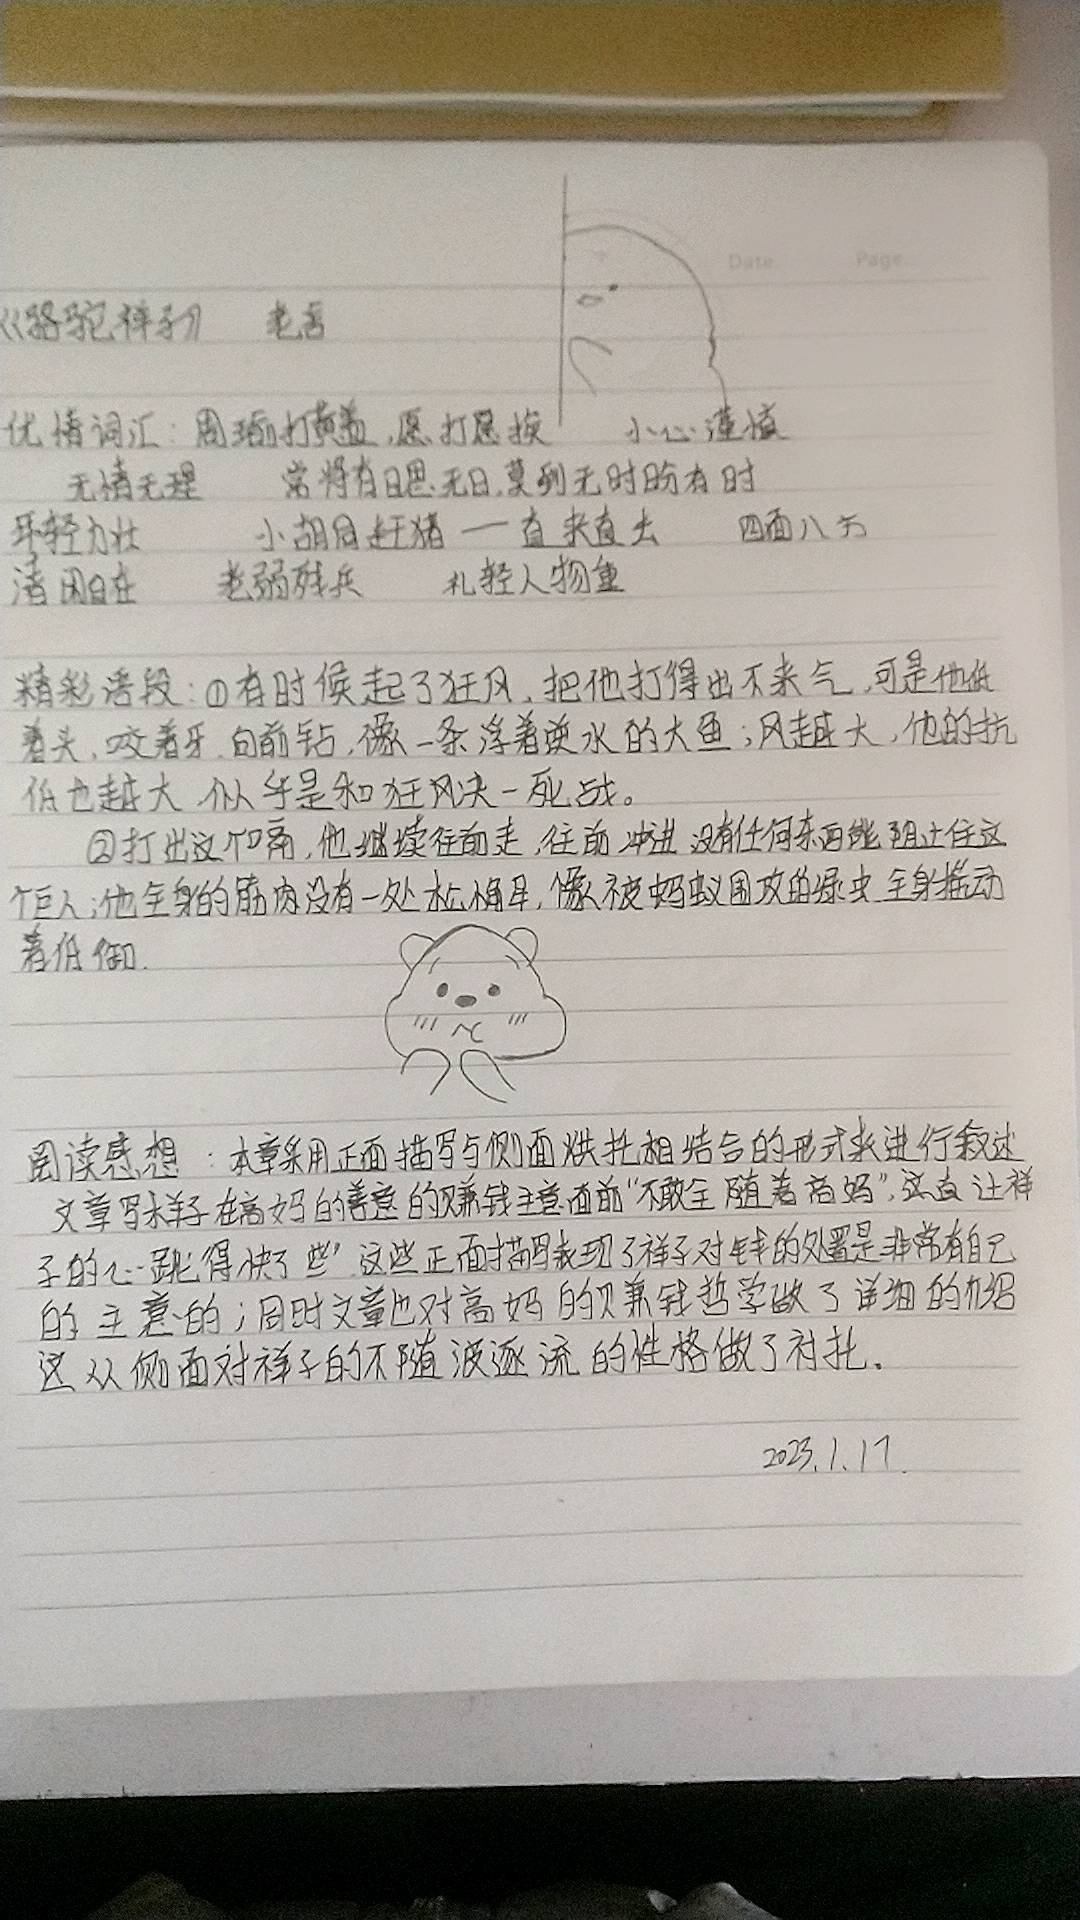 Date Page
《骆驼祥子》 老舍
优情词汇：周瑜打黄盖，愿打愿挨 小心谨慎
无情无理 常将有日思无日，莫到无时盼有时
年轻力壮 小胡同赶猪一直来直去 四面八方
清闲自在 老弱残兵 礼轻人物重
精彩语段：①有时候起了狂风，把他打得出不来气，可是他低
着头，咬着牙，向前钻，像一条浮着逆水的大鱼；风越大，他的抗
低也越大，似乎是和狂风决一死战。
②打出这个嗝，他继续往前走，往前冲进，没有任何东西能阻止住这
个巨人；他全身的筋肉没有一处松懈，像被蚂蚁围攻的绿虫，全身摇动
着低御．
阅读感想：本章采用正面描写与侧面烘托相结合的形式来进行叙述
文章写祥子在高妈的善意的赚钱主意面前“不敢全随着高妈”，这直让祥
子的心“跳得快了些”这些正面描写表现了祥子对钱的处置是非常有自己
的主意的；同时文章也对高妈的赚钱哲学做了详细的介绍
这从侧面对祥子的不随波逐流的性格做了衬托．
2023.1.17.